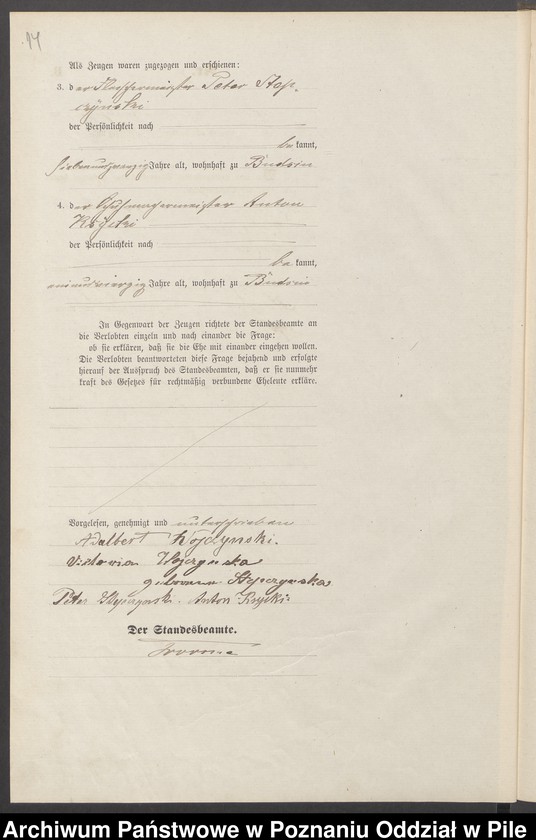 14
Als Zeugen waren zugezogen und erschienen:
3. der Peter Stop-
czynski
der Persönlichkeit nach
be kannt,
siebenundvierzig Jahre alt, wohnhaft zu Budsin
4. der Schuhmachermeister Anton
der Persönlichkeit nach
be kannt,
Jahre alt, wohnhaft zu Budsin
In Gegenwart der Zeugen richtete der Standesbeamte an
die Verlobten einzeln und nach einander die Frage:
ob sie erklären, daß sie die Ehe mit einander eingehen wollen.
Die Verlobten beantworteten diese Frage bejahend und erfolgte
hierauf der Ausspruch des Standesbeamten, daß er sie nunmehr
kraft des Gesetzes für rechtmäßig verbundene Eheleute erkläre.
Vorgelesen, genehmigt und unterschrieben
Adalbert Wojczynski.
Victoria Wojczynska
geborene Stopczynska
Peter Anton
Der Standesbeamte.
Archiwum Państwowe w Poznaniu Oddział w Pile